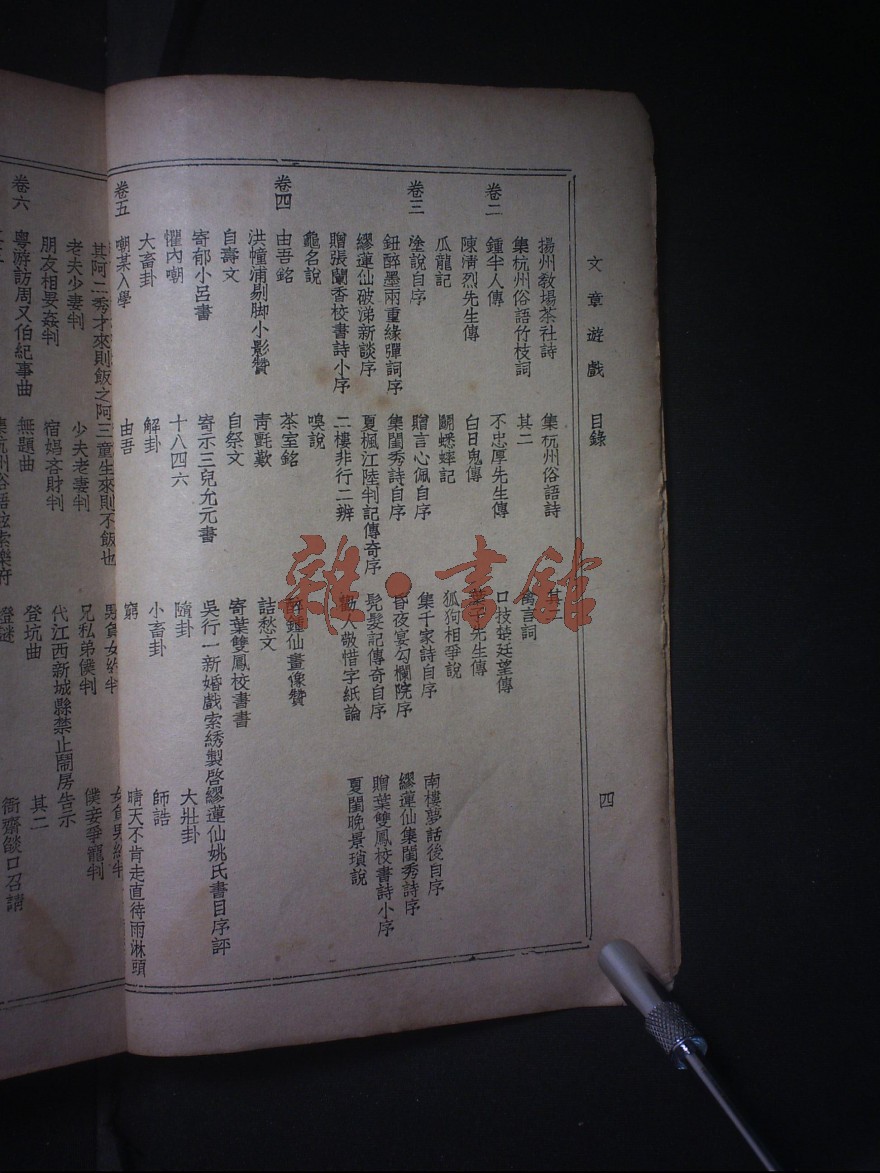 文章遊戲 目錄 四
揚州教場茶社詩 集杭州俗語詩
集杭州俗語竹枝詞 其二 其三 寓言詞
卷二 鍾半人傳 不忠厚先生傳 口技楚廷望傳
陳淸烈先生傳 白日鬼傳 先生傳
瓜龍記 鬭蟋蟀記 狐狗相爭說
卷三 塗說自序 贈言心佩自序 集千家詩自序 南樓夢話後自序
鈕醉墨兩重緣彈詞序 集閨秀詩自序 昏夜宴勾欄院序 繆蓮仙集閨秀詩序
繆蓮仙破涕新談序 夏楓江陸判記傳奇序 髡髮記傳奇自序 贈葉雙鳳校書詩小序
贈張蘭香校書詩小序 二樓非行二辨 勸人敬惜字紙論 夏閨晚景瑣說
龜名說 嗅說
卷四 由吾銘 茶室銘 醉鍾仙畫像贊
洪幢浦剔脚小影贊 靑氈歎 詰愁文
自壽文 自祭文 寄葉雙鳳校書書
寄郁小呂書 寄示三兒允元書 吳行一新婚戲索綉製啓 繆蓮仙姚氏書目序評
懼內嘲 十八四六 隨卦 大壯卦
大畜卦 解卦 小畜卦 師誥
卷五 嘲某入學 由吾 窮 晴天不肯走直待雨淋頭
其阿二秀才來則飯之阿三童生來則不飯也 男負女約判 女負男約判
老夫少妻判 少夫老妻判 兄私弟僕判 僕妾爭寵判
朋友相娶姦判 宿娼吝財判 代江西新城縣禁止鬧房告示
卷六 粵游訪周又伯紀事曲 無題曲 登坑曲 其二
集杭州俗語絃索樂府 燈謎 衙齋燄口召請
雜·書館